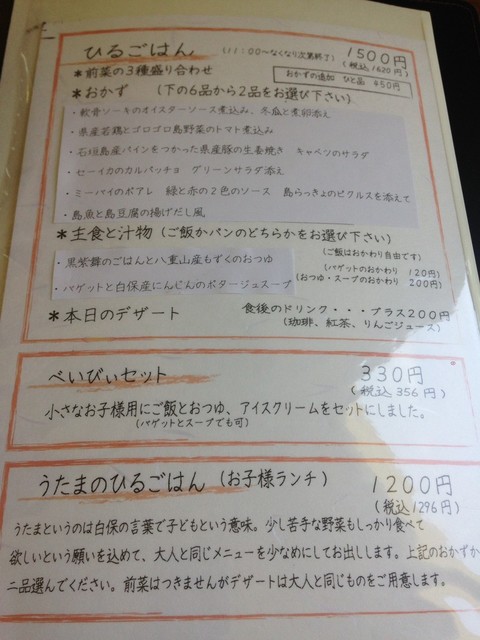 ひるごはん (11:00〜なくなり次第終了) 1500円
(税込1620円)
*前菜の3種盛り合わせ おかずの追加 ひと品 450円
*おかず (下の6品から2品をお選び下さい)
・軟骨ソーキのオイスターソース煮込み、冬瓜と煮卵添え
・県産若鶏とゴロゴロ島野菜のトマト煮込み
・石垣島産パインをつかった県産豚の生姜焼き キャベツのサラダ
・セーイカのカルパッチョ グリーンサラダ添え
・ミーバイのポアレ 緑と赤の2色のソース 島らっきょのピクルスを添えて
・島魚と島豆腐の揚げだし風
*主食と汁物 (ご飯かパンのどちらかをお選び下さい)
(ご飯はおかわり自由です)
・黒紫舞のごはんと八重山産もずくのおつゆ (バゲットのおかわり 120円)
(おつゆ・スープのおかわり 200円)
・バゲットと白保産にんじんのポタージュスープ
*本日のデザート 食後のドリンク・・・プラス200円
(珈琲、紅茶、りんごジュース)
べいびぃセット 330円
(税込356円)
小さなお子様用にご飯とおつゆ、アイスクリームをセットにしました。
(バゲットとスープでも可)
うたまのひるごはん (お子様ランチ) 1200円
(税込1296円)
うたまというのは白保の言葉で子どもという意味。少し苦手な野菜もしっかり食べて
欲しいという願いを込めて、大人と同じメニューを少なめにしてお出しします。上記のおかずか
二品選んでください。前菜はつきませんがデザートは大人と同じものをご用意します。